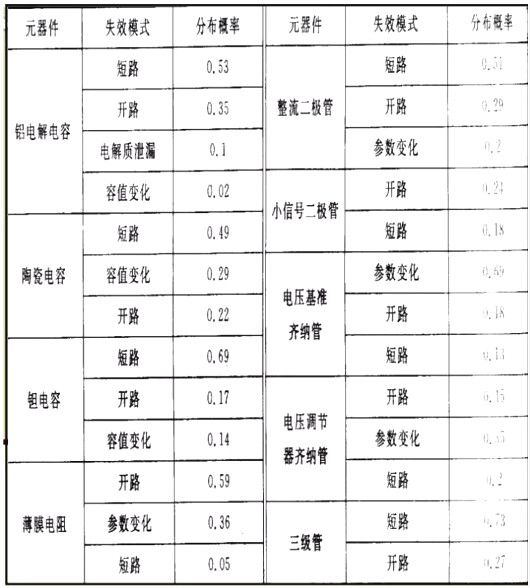 元器件 失效模式 分布概率 元器件 失效模式 分布概率
铝电解电容 短路 0.53 整流二极管 短路 0.51
开路 0.35 开路 0.29
电解质泄漏 0.1 参数变化 0.2
容值变化 0.02 小信号二极管 开路 0.24
陶瓷电容 短路 0.49 短路 0.18
容值变化 0.29 电压基准齐纳管 参数变化 0.69
开路 0.22 开路 0.18
钽电容 短路 0.69 短路 0.13
开路 0.17 电压调节器齐纳管 开路
容值变化 0.14 参数变化
薄膜电阻 开路 0.59 短路 0.2
参数变化 0.36 三级管 短路 0.73
短路 0.05 开路 0.27